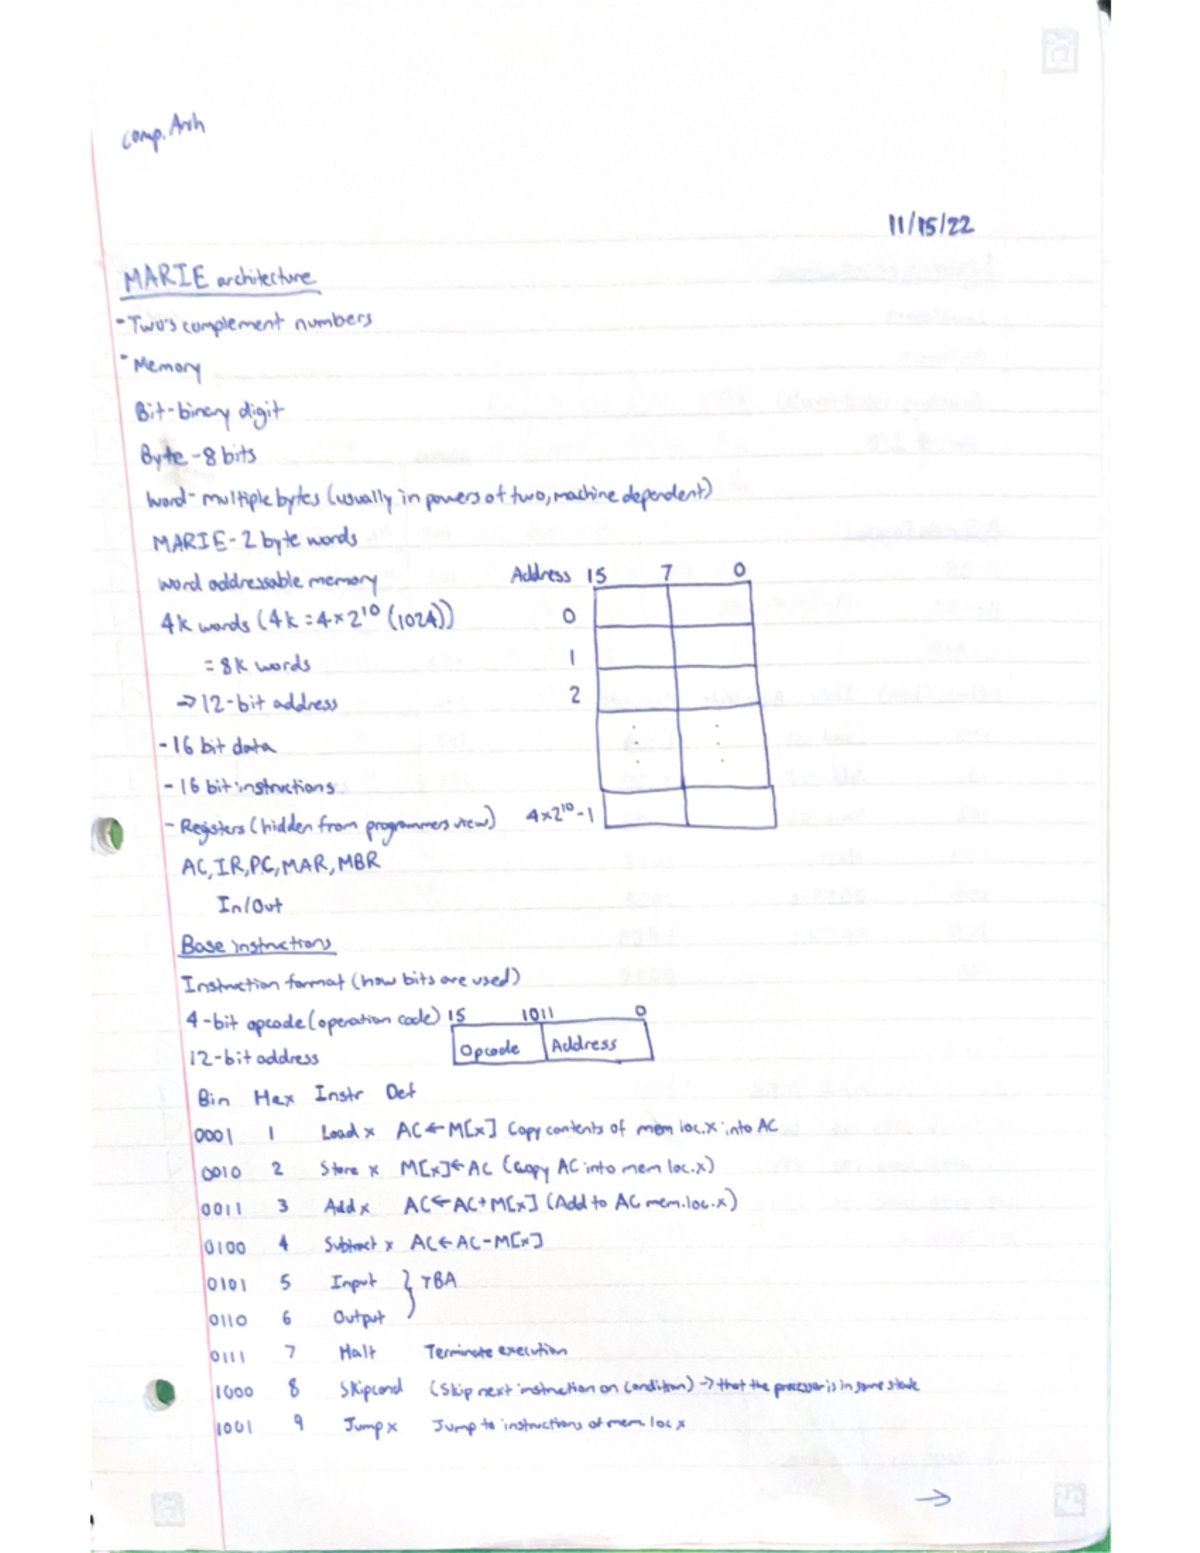 comp. Arh
11/15/22
MARIE architecture
- Two's complement numbers
- Memory
Bit - binary digit
Byte - 8 bits
word - multiple bytes (usually in powers of two, machine dependent)
MARIE - 2 byte words
word addressable memory
4k words (4k = 4 x 2^10 (1024))
= 8k words
→ 12-bit address
- 16 bit data
- 16 bit instructions
- Registers (hidden from programmers view)
AC, IR, PC, MAR, MBR
In/Out
Address 15 7 0
0
1
2
4x2^10-1
Base instructions
Instruction format (how bits are used)
4-bit opcode (operation code) 15 10 11 0
12-bit address Opcode Address
Bin Hex Instr Def
0001 1 Load x AC ← M[x] Copy contents of mem loc. x into AC
0010 2 Store x M[x] ← AC (Copy AC into mem loc. x)
0011 3 Add x AC ← AC + M[x] (Add to AC mem. loc. x)
0100 4 Subtract x AC ← AC - M[x]
0101 5 Input } TBA
0110 6 Output
0111 7 Halt Terminate execution
1000 8 Skipcond (Skip next instruction on condition) → that the processor is in some state
1001 9 Jump x Jump to instructions at mem. loc x
→